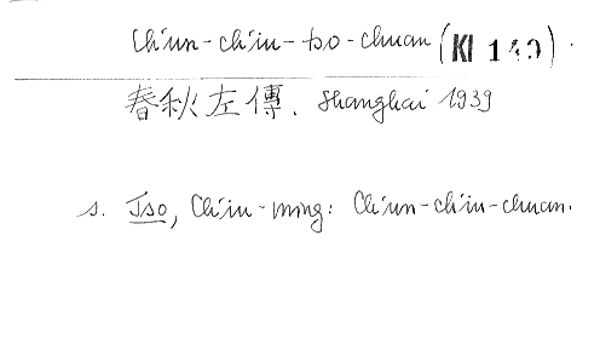 Ch'un-ch'iu-tso-chuan (KI 140).
春秋左傳. Shanghai 1939
s. Tso, Ch'iu-ming: Ch'un-ch'iu-chuan.